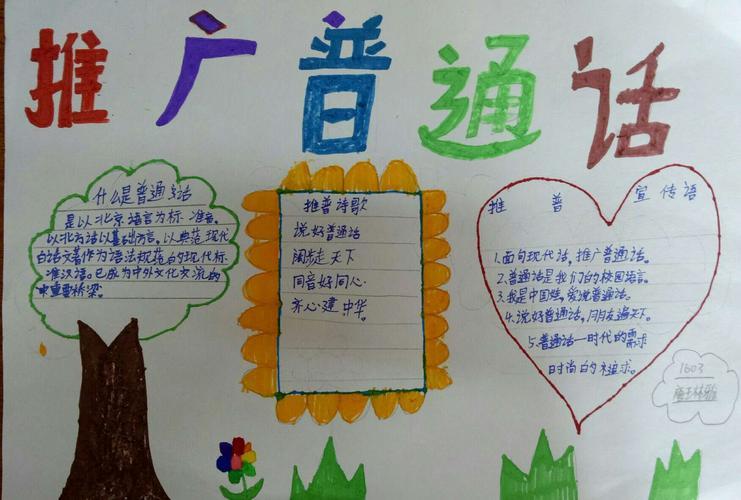 推广普通话
什么是普通话
是以北京语言为标准音。
以北方话以基础方言。以典范现代
白话文著作为语法规范的现代标
准汉语。已成为中外文化交流的
重要桥梁。
推普诗歌
说好普通话
阔步走天下
同音好同心.
齐心建中华。
推普宣传语
1.面向现代话,推广普通话。
2.普通话是我们的校园语言。
3.我是中国娃,爱说普通话.
4.说好普通话,朋友遍天下。
5.普通话一时代的需求
时尚的追求。
1603